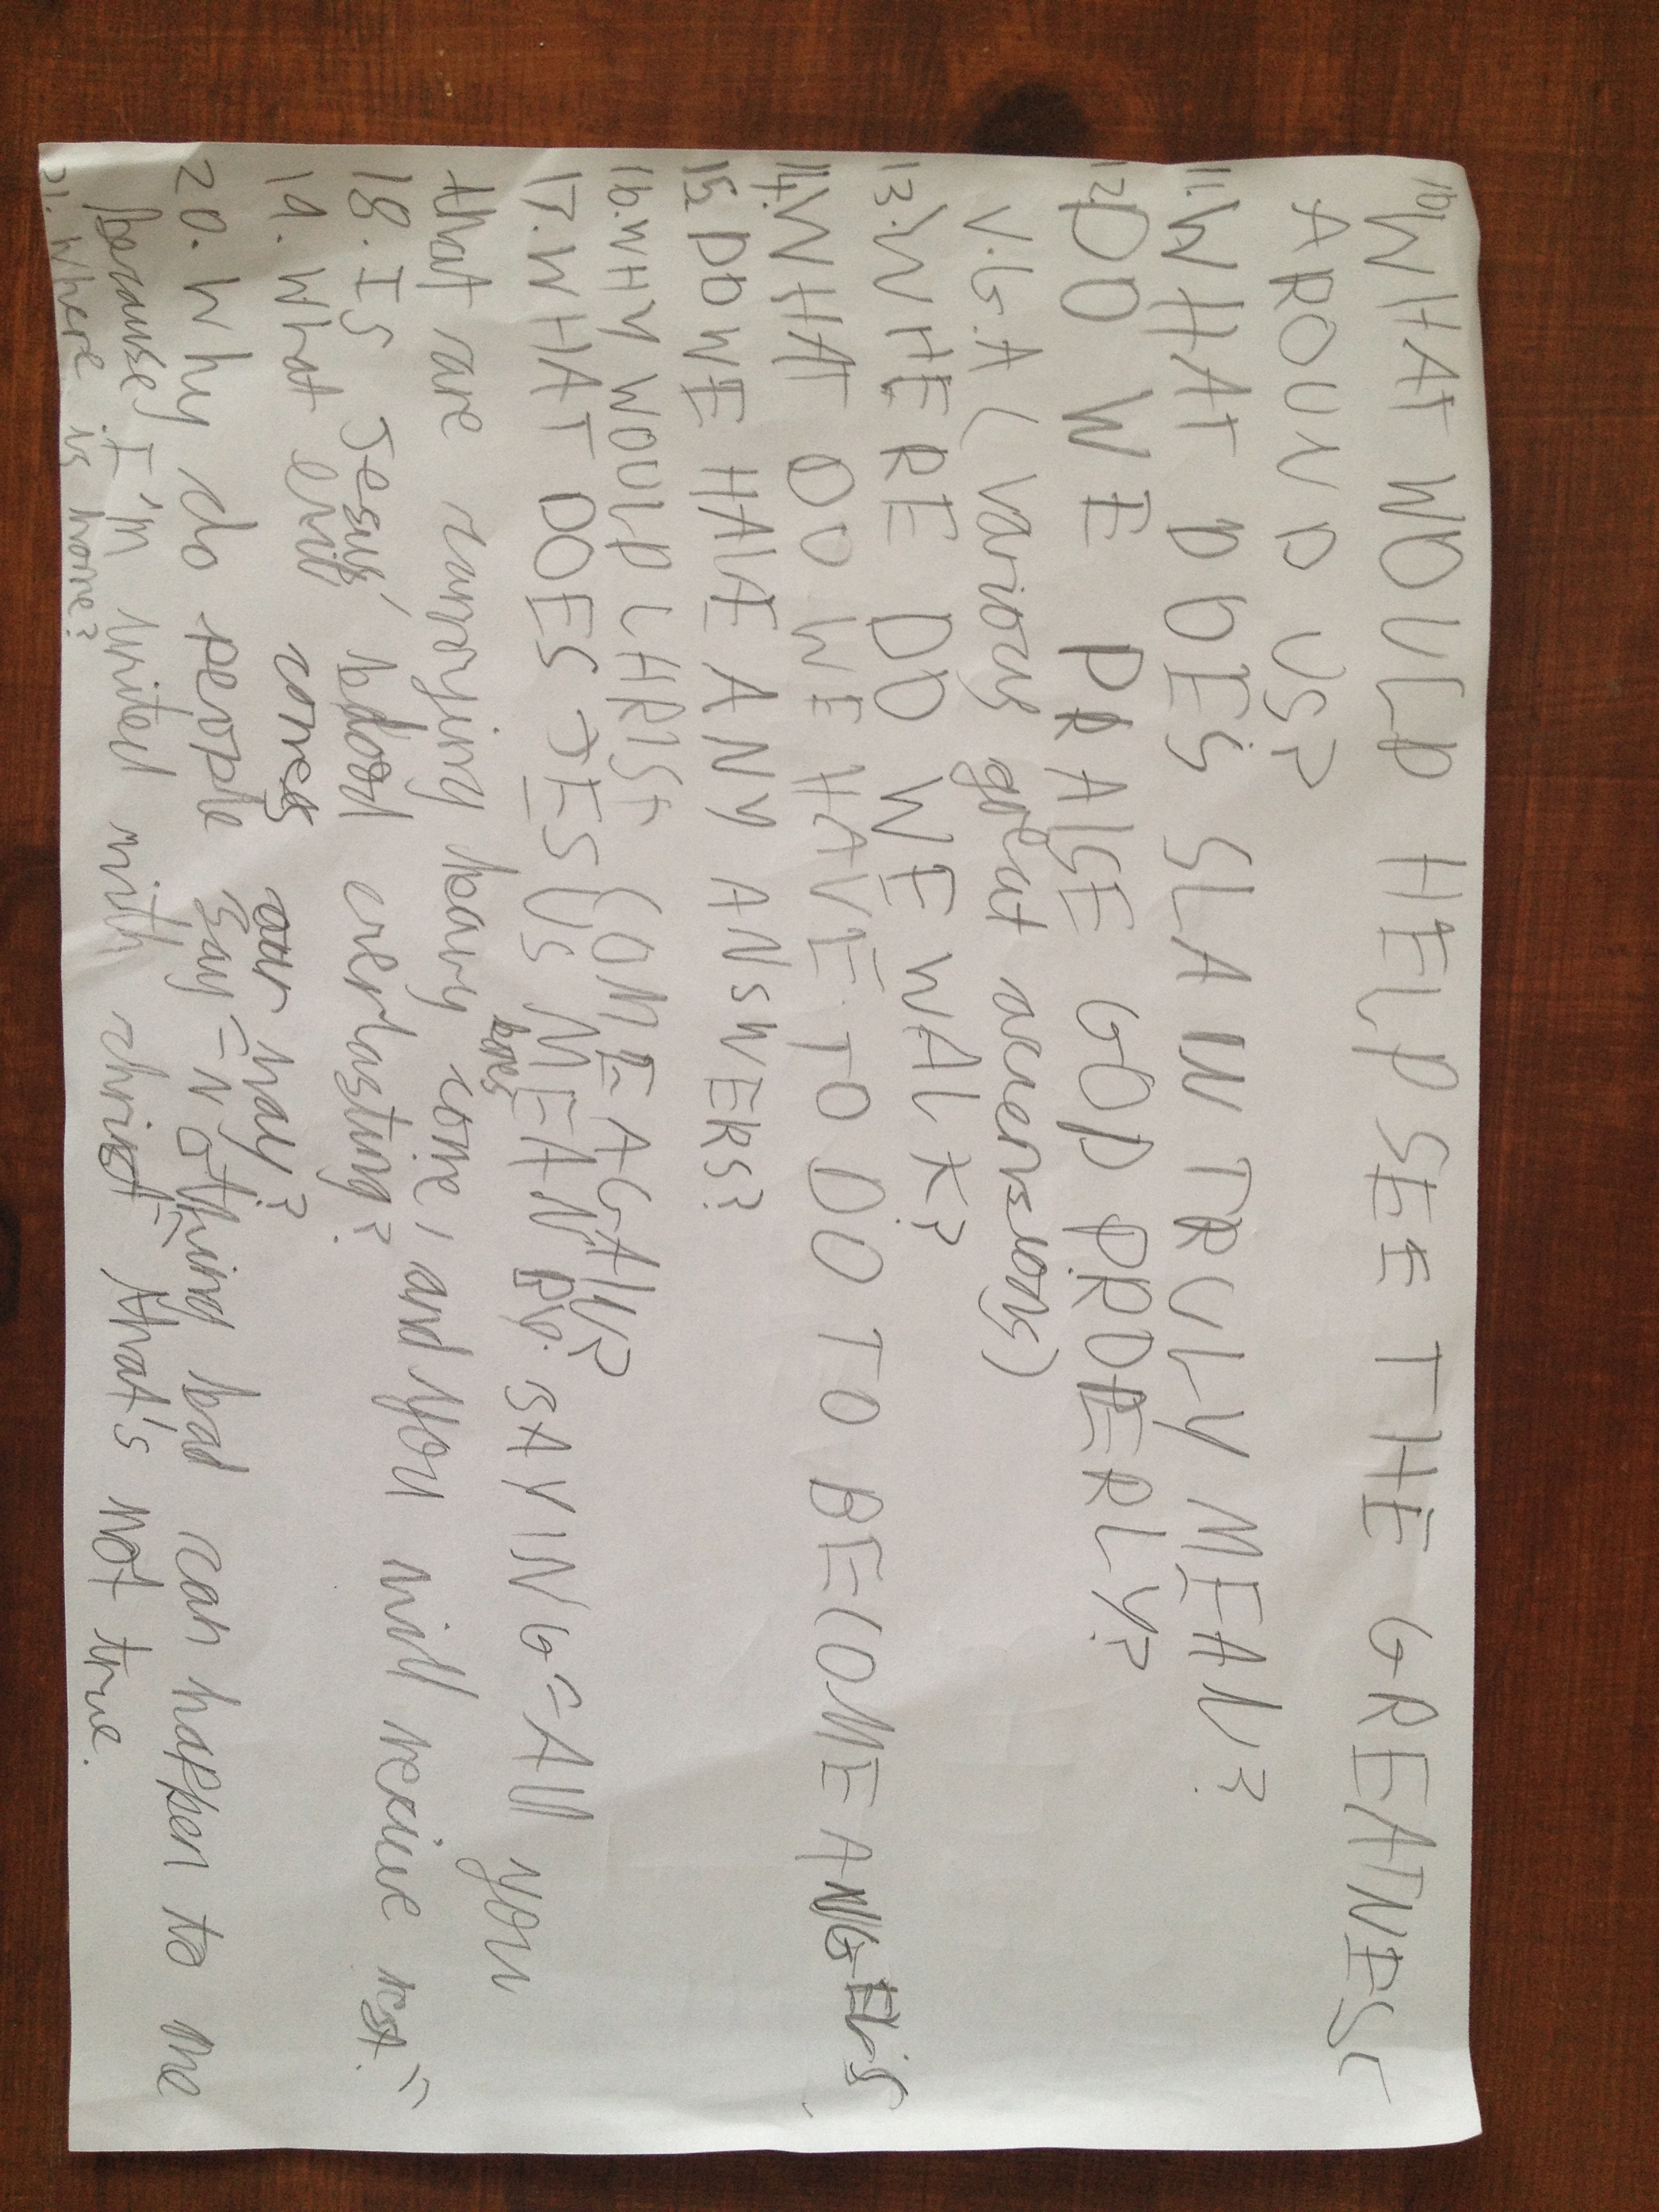 10. WHAT WOULD HELP SEE THE GREATNESS
AROUND US?
11. WHAT DOES SLAIN TRULY MEAN?
12. DO WE PRAISE GOD PROPERLY?
V.G.A ( various great
13. WHERE DO WE WALK?
14. WHAT DO WE HAVE TO DO TO BECOME ANGELS
15. DO WE HAVE ANY ANSWERS?
16. WHY WOULD CHRIST COME AGAIN?
17. WHAT DOES JESUS MEAN BY SAYING=All you
that are carrying heavy come, and You will recive rest."
18. Is Jesus' blood everlasting?
19. What evil comes our way?
20. Why do people say=Nothing bad can happen to me
because I'm united with christ= that's not true.
21. Where is home?